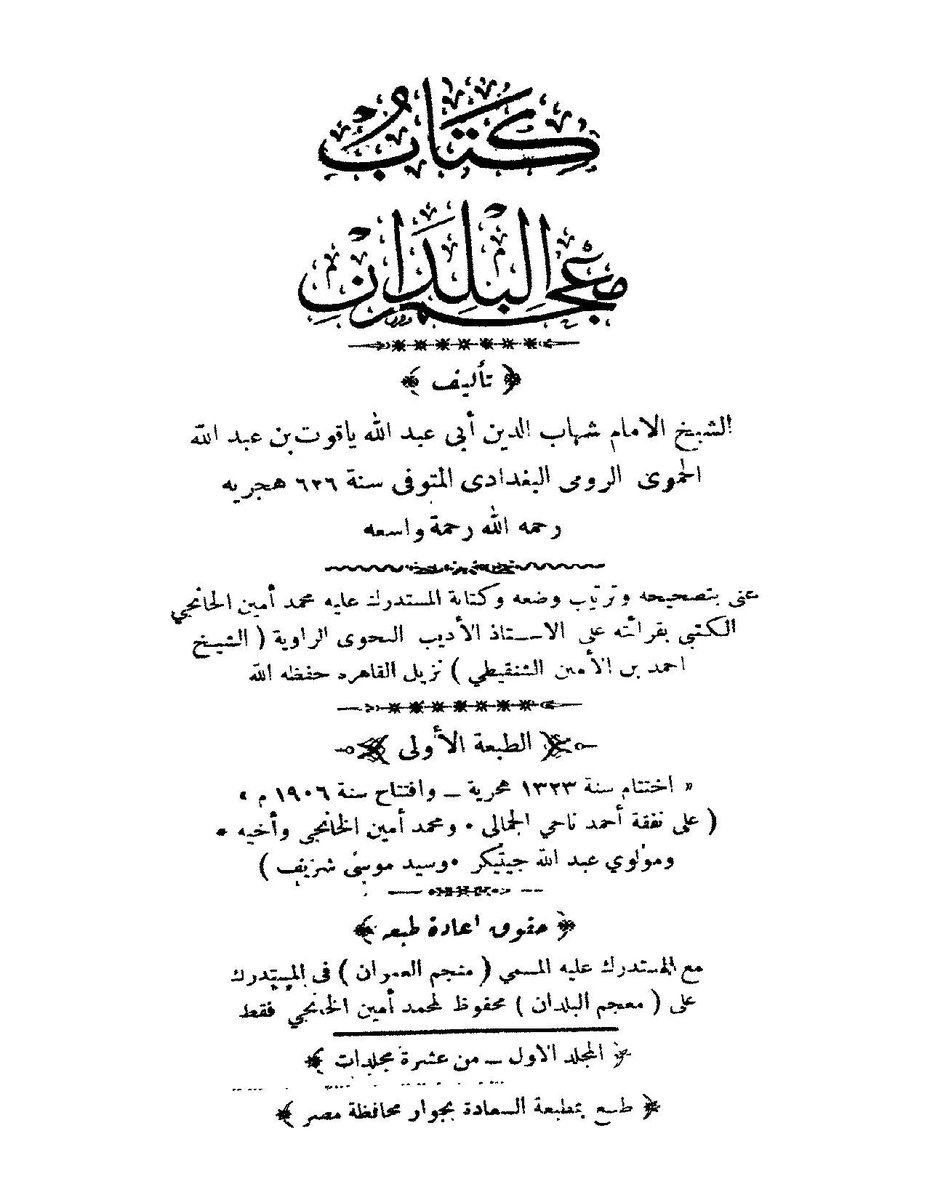 كتابُ
معجم البلدان
﴿ تأليف ﴾
الشيخ الامام شهاب الدين أبي عبد الله ياقوت بن عبد الله
الحموي الرومى البغدادى المتوفى سنة ٦٢٦ هجريه
رحمه الله رحمة واسعه
عنى بتصحيحه وترتيب وضعه وكتابة المستدرك عليه محمد أمين الخانجي
الكتبي بقرائته على الاستاذ الأديب النحوى الراوية ( الشيخ
احمد بن الأمين الشنقيطي ) نزيل القاهره حفظه الله
الطبعة الأولى
« اختتام سنة ١٣٢٣ هجرية ــ وافتتاح سنة ١٩٠٦ م »
( على نفقة أحمد ناجي الجمالى • ومحمد أمين الخانجي وأخيه •
ومولوي عبد الله جيتيكر • وسيد موسى شريف )
﴿ حقوق اعادة طبعه ﴾
مع المستدرك عليه المسمي ( منجم العمران ) فى المستدرك
على ( معجم البلدان ) محفوظ لمحمد أمين الخانجي فقط
﴿ المجلد الاول ــ من عشرة مجلدات ﴾
﴿ طبع بمطبعة السعادة بجوار محافظة مصر ﴾